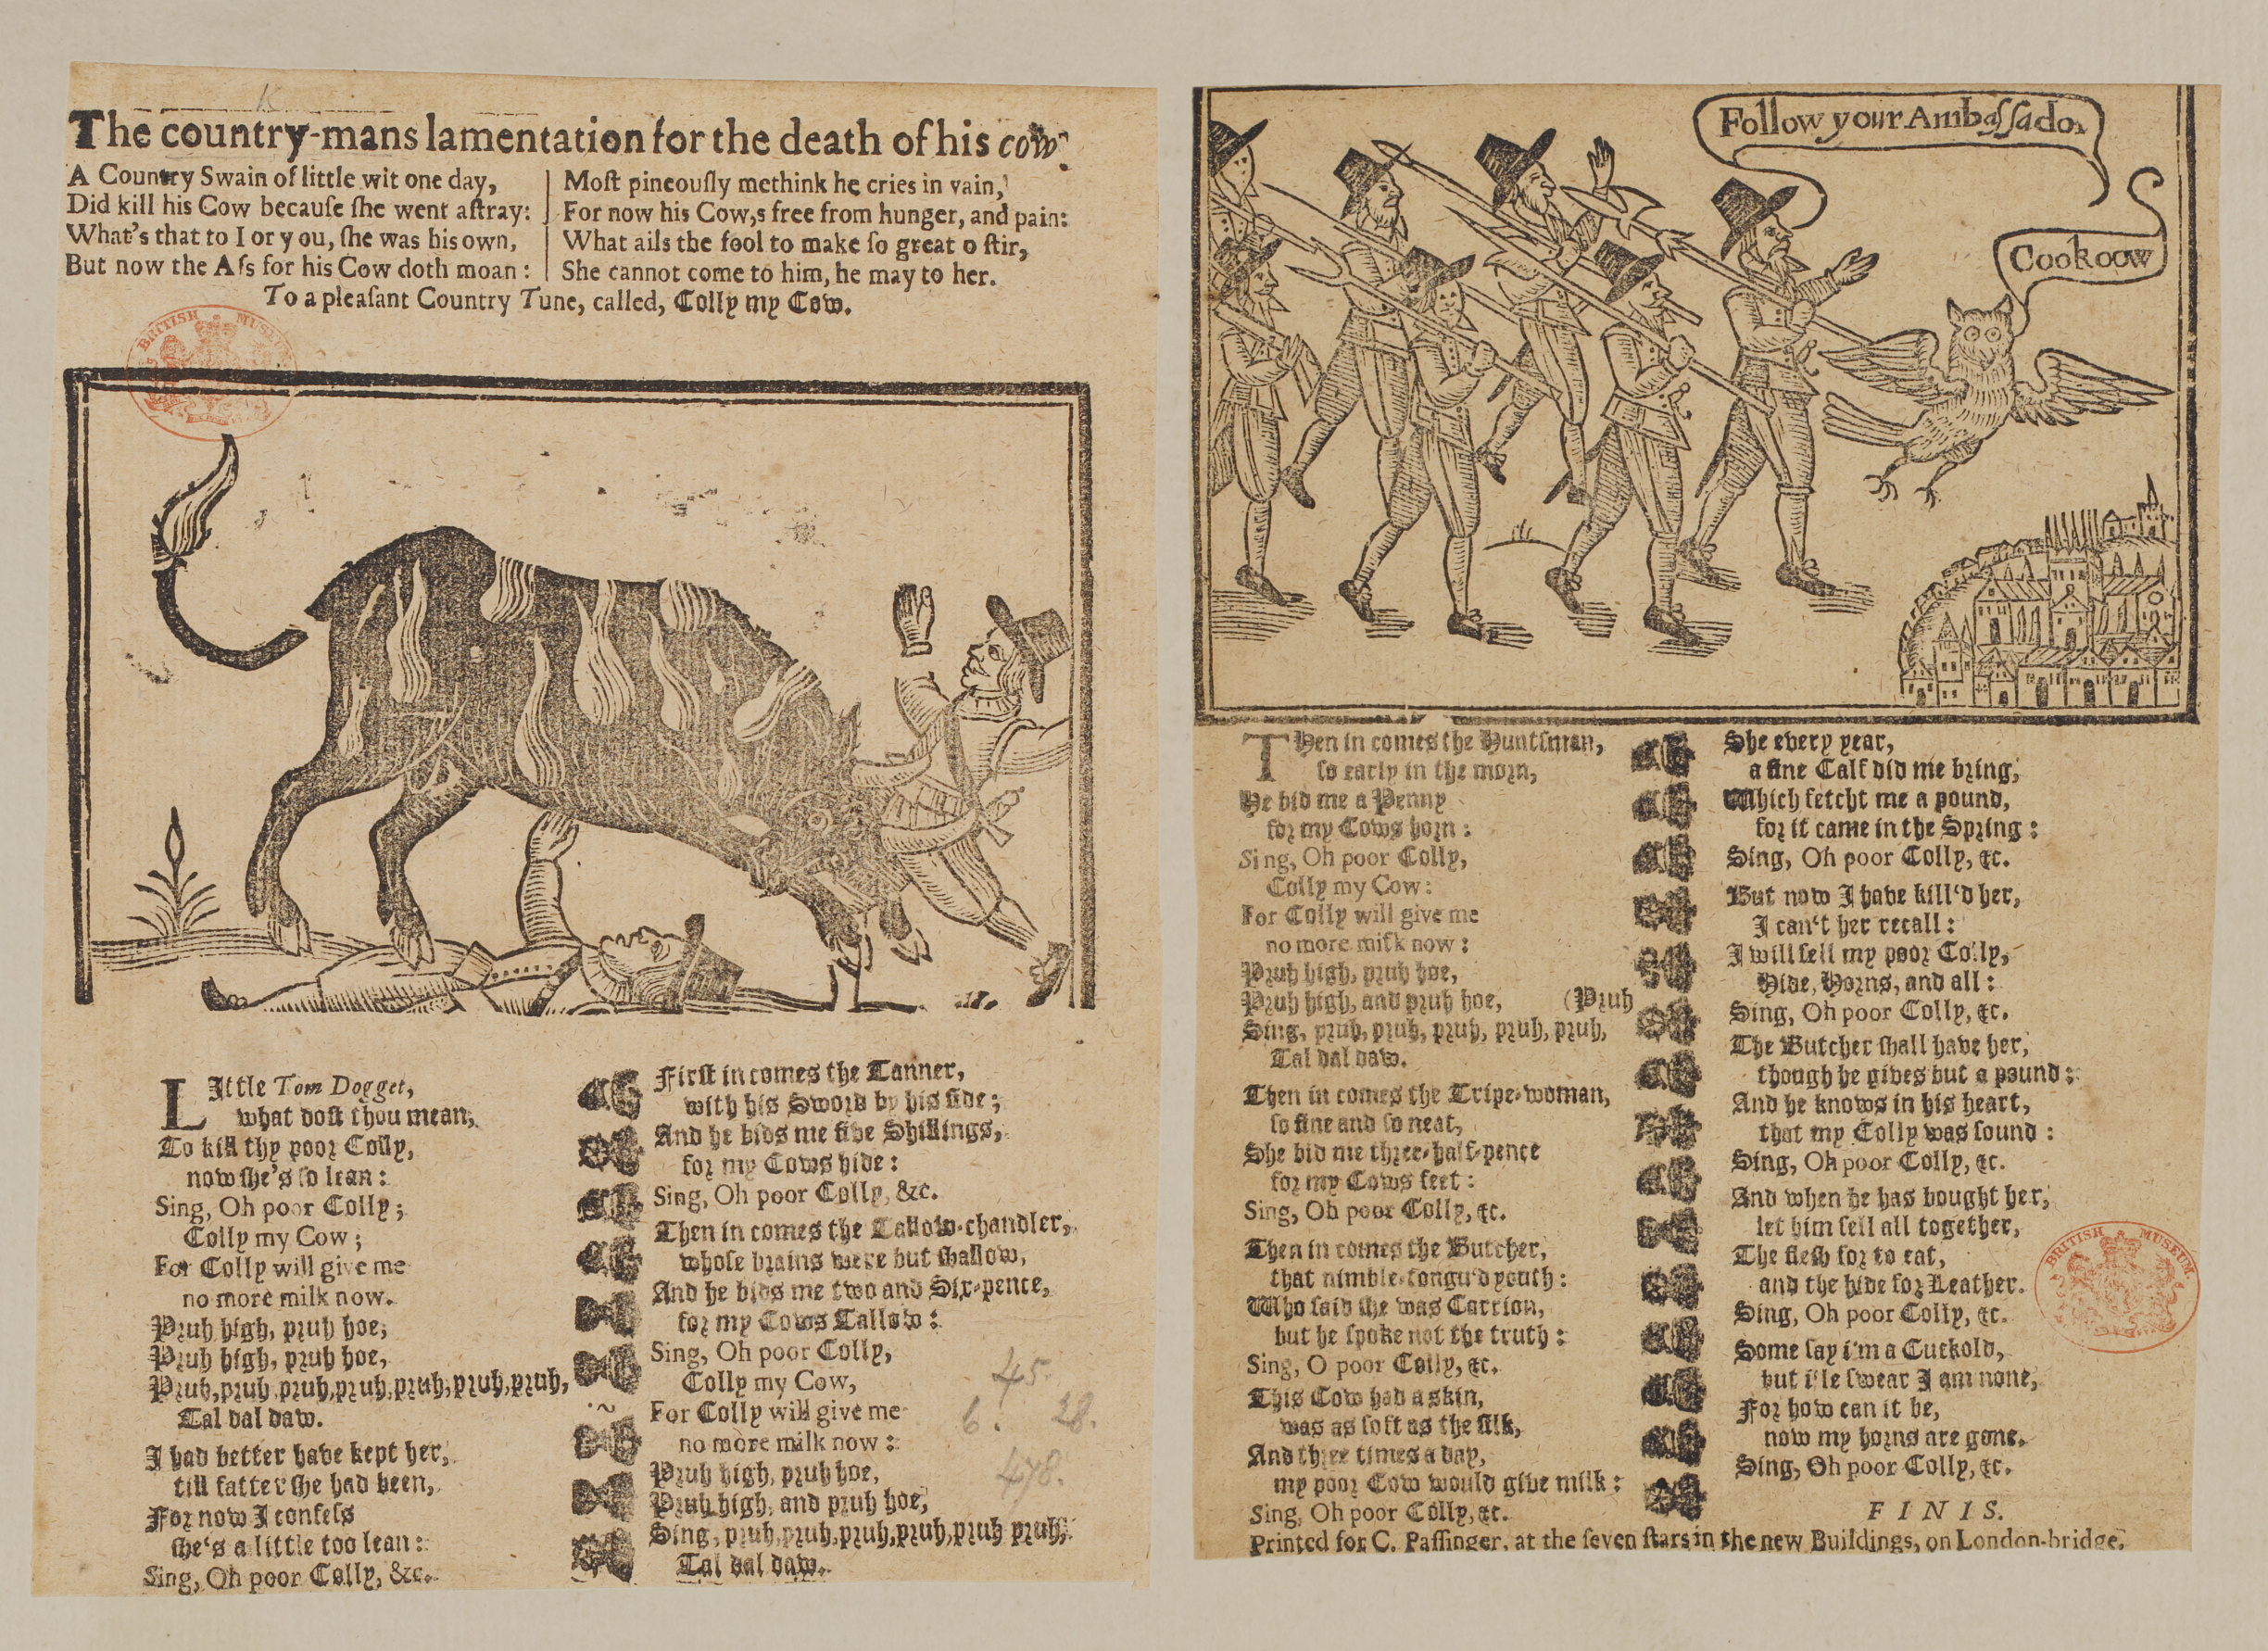 The country-mans lamentation for the death of his cow.
A Country Swain of little wit one day,
Did kill his Cow becauſe ſhe went aſtray:
What's that to I or you, ſhe was his own,
But now the Aſs for his Cow doth moan:
Moſt pineouſly methink he cries in vain,
For now his Cow,s free from hunger, and pain:
What ails the fool to make ſo great o ſtir,
She cannot come to him, he may to her.
To a pleaſant Country Tune, called, Colly my Cow.
BRITISH MUSEUM
LIttle Tom Dogget,
what doſt thou mean,
To kill thy poor Colly,
now ſhe's ſo lean:
Sing, Oh poor Colly;
Colly my Cow;
For Colly will give me
no more milk now.
Pruh high, pruh hoe,
Pruh high, pruh hoe,
Pruh, pruh, pruh, pruh, pruh, pruh, pruh,
Tal dal daw.
I had better have kept her,
till fatter ſhe had been,
For now I confeſs
ſhe's a little too lean:
Sing, Oh poor Colly, &c.
Firſt in comes the Tanner,
with his Sword by his ſide;
And he bids me five Shillings,
for my Cows hide:
Sing, Oh poor Colly, &c.
Then in comes the Tallow-chandler,
whoſe brains were but ſhallow,
And he bids me two and Six-pence,
for my Cows Tallow:
Sing, Oh poor Colly,
Colly my Cow,
For Colly will give me
no more milk now:
Pruh high, pruh hoe,
Pruh high, and pruh hoe,
Sing, pruh, pruh, pruh, pruh, pruh pruh,
Tal dal daw.
45.
6. 28.
478.
Follow your Ambaſſador
Cookoow
THen in comes the Huntſman,
ſo early in the morn,
He bid me a Penny
for my Cows horn:
Sing, Oh poor Colly,
Colly my Cow:
For Colly will give me
no more milk now:
Pruh high, pruh hoe,
Pruh high, and pruh hoe, (Pruh
Sing, pruh, pruh, pruh, pruh, pruh,
Tal dal daw.
Then in comes the Tripe-woman,
ſo fine and ſo neat,
She bid me three-half-pence
for my Cows feet:
Sing, Oh poor Colly, &c.
Then in comes the Butcher,
that nimble-tongu'd youth:
Who ſaid ſhe was Carrion,
but he ſpoke not the truth:
Sing, O poor Colly, &c.
This Cow had a skin,
was as ſoft as the ſilk,
And three times a day,
my poor Cow would give milk:
Sing, Oh poor Colly, &c.
She every year,
a fine Calf did me bring,
Which fetcht me a pound,
for it came in the Spring:
Sing, Oh poor Colly, &c.
But now I have kill'd her,
I can't her recall:
I will ſell my poor Colly,
Hide, Horns, and all:
Sing, Oh poor Colly, &c.
The Butcher ſhall have her,
though he gives but a pound:
And he knows in his heart,
that my Colly was ſound:
Sing, Oh poor Colly, &c.
And when he has bought her,
let him ſell all together,
The fleſh for to eat,
and the hide for Leather.
Sing, Oh poor Colly, &c.
Some ſay i'm a Cuckold,
but i'le ſwear I am none,
For how can it be,
now my horns are gone.
Sing, Oh poor Colly, &c.
FINIS.
BRITISH MUSEUM
Printed for C. Paſſinger, at the ſeven ſtars in the new Buildings, on London-bridge.